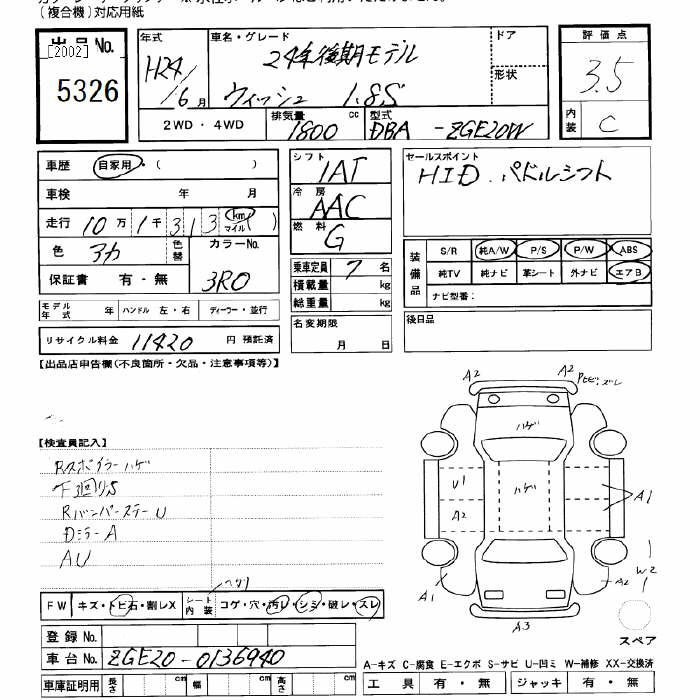 (複合機)対応用紙
出品 No.
[2002]
5326
年式
H24/6月
車名・グレード
24年後期モデル
ウィッシュ 1.8S
ドア
形状
評価点
3.5
内装
C
2WD・4WD
排気量
1800 cc
型式
DBA-ZGE20W
車歴 自家用・( )
車検 年 月
走行 10万1千313 (km マイル)
色 アカ
色替
カラーNo.
3R0
保証書 有・無
モデル年式 年
ハンドル 左・右
ディーラー・並行
リサイクル料金 11420 円 預託済
シフト
IAT
冷房
AAC
燃料
G
乗車定員 7 名
積載量 kg
総重量 kg
名変期限
月 日
セールスポイント
HID. パドルシフト
装備品
S/R 純A/W P/S P/W ABS
純TV 純ナビ 革シート 外ナビ エアB
ナビ型番:
後日品
【出品店申告欄(不良箇所・欠品・注意事項等)】
【検査員記入】
Rスポイラーハゲ
下廻りS
RバンパーステーU
DミラーA
AU
A2
A2
ハゲ
U1
ハゲ
A2
A1
A1
A2
W2
A3
スペア
FW キズ・トビ石・割レX
シート内装 コゲ・穴・汚レ・シミ・破レ・スレ
登録 No.
車台 No. ZGE20-0136940
車庫証明用 長さ cm 幅 cm 高さ cm
A-キズ C-腐食 E-エクボ S-サビ U-凹ミ W-補修 XX-交換済
工具 有・無
ジャッキ 有・無